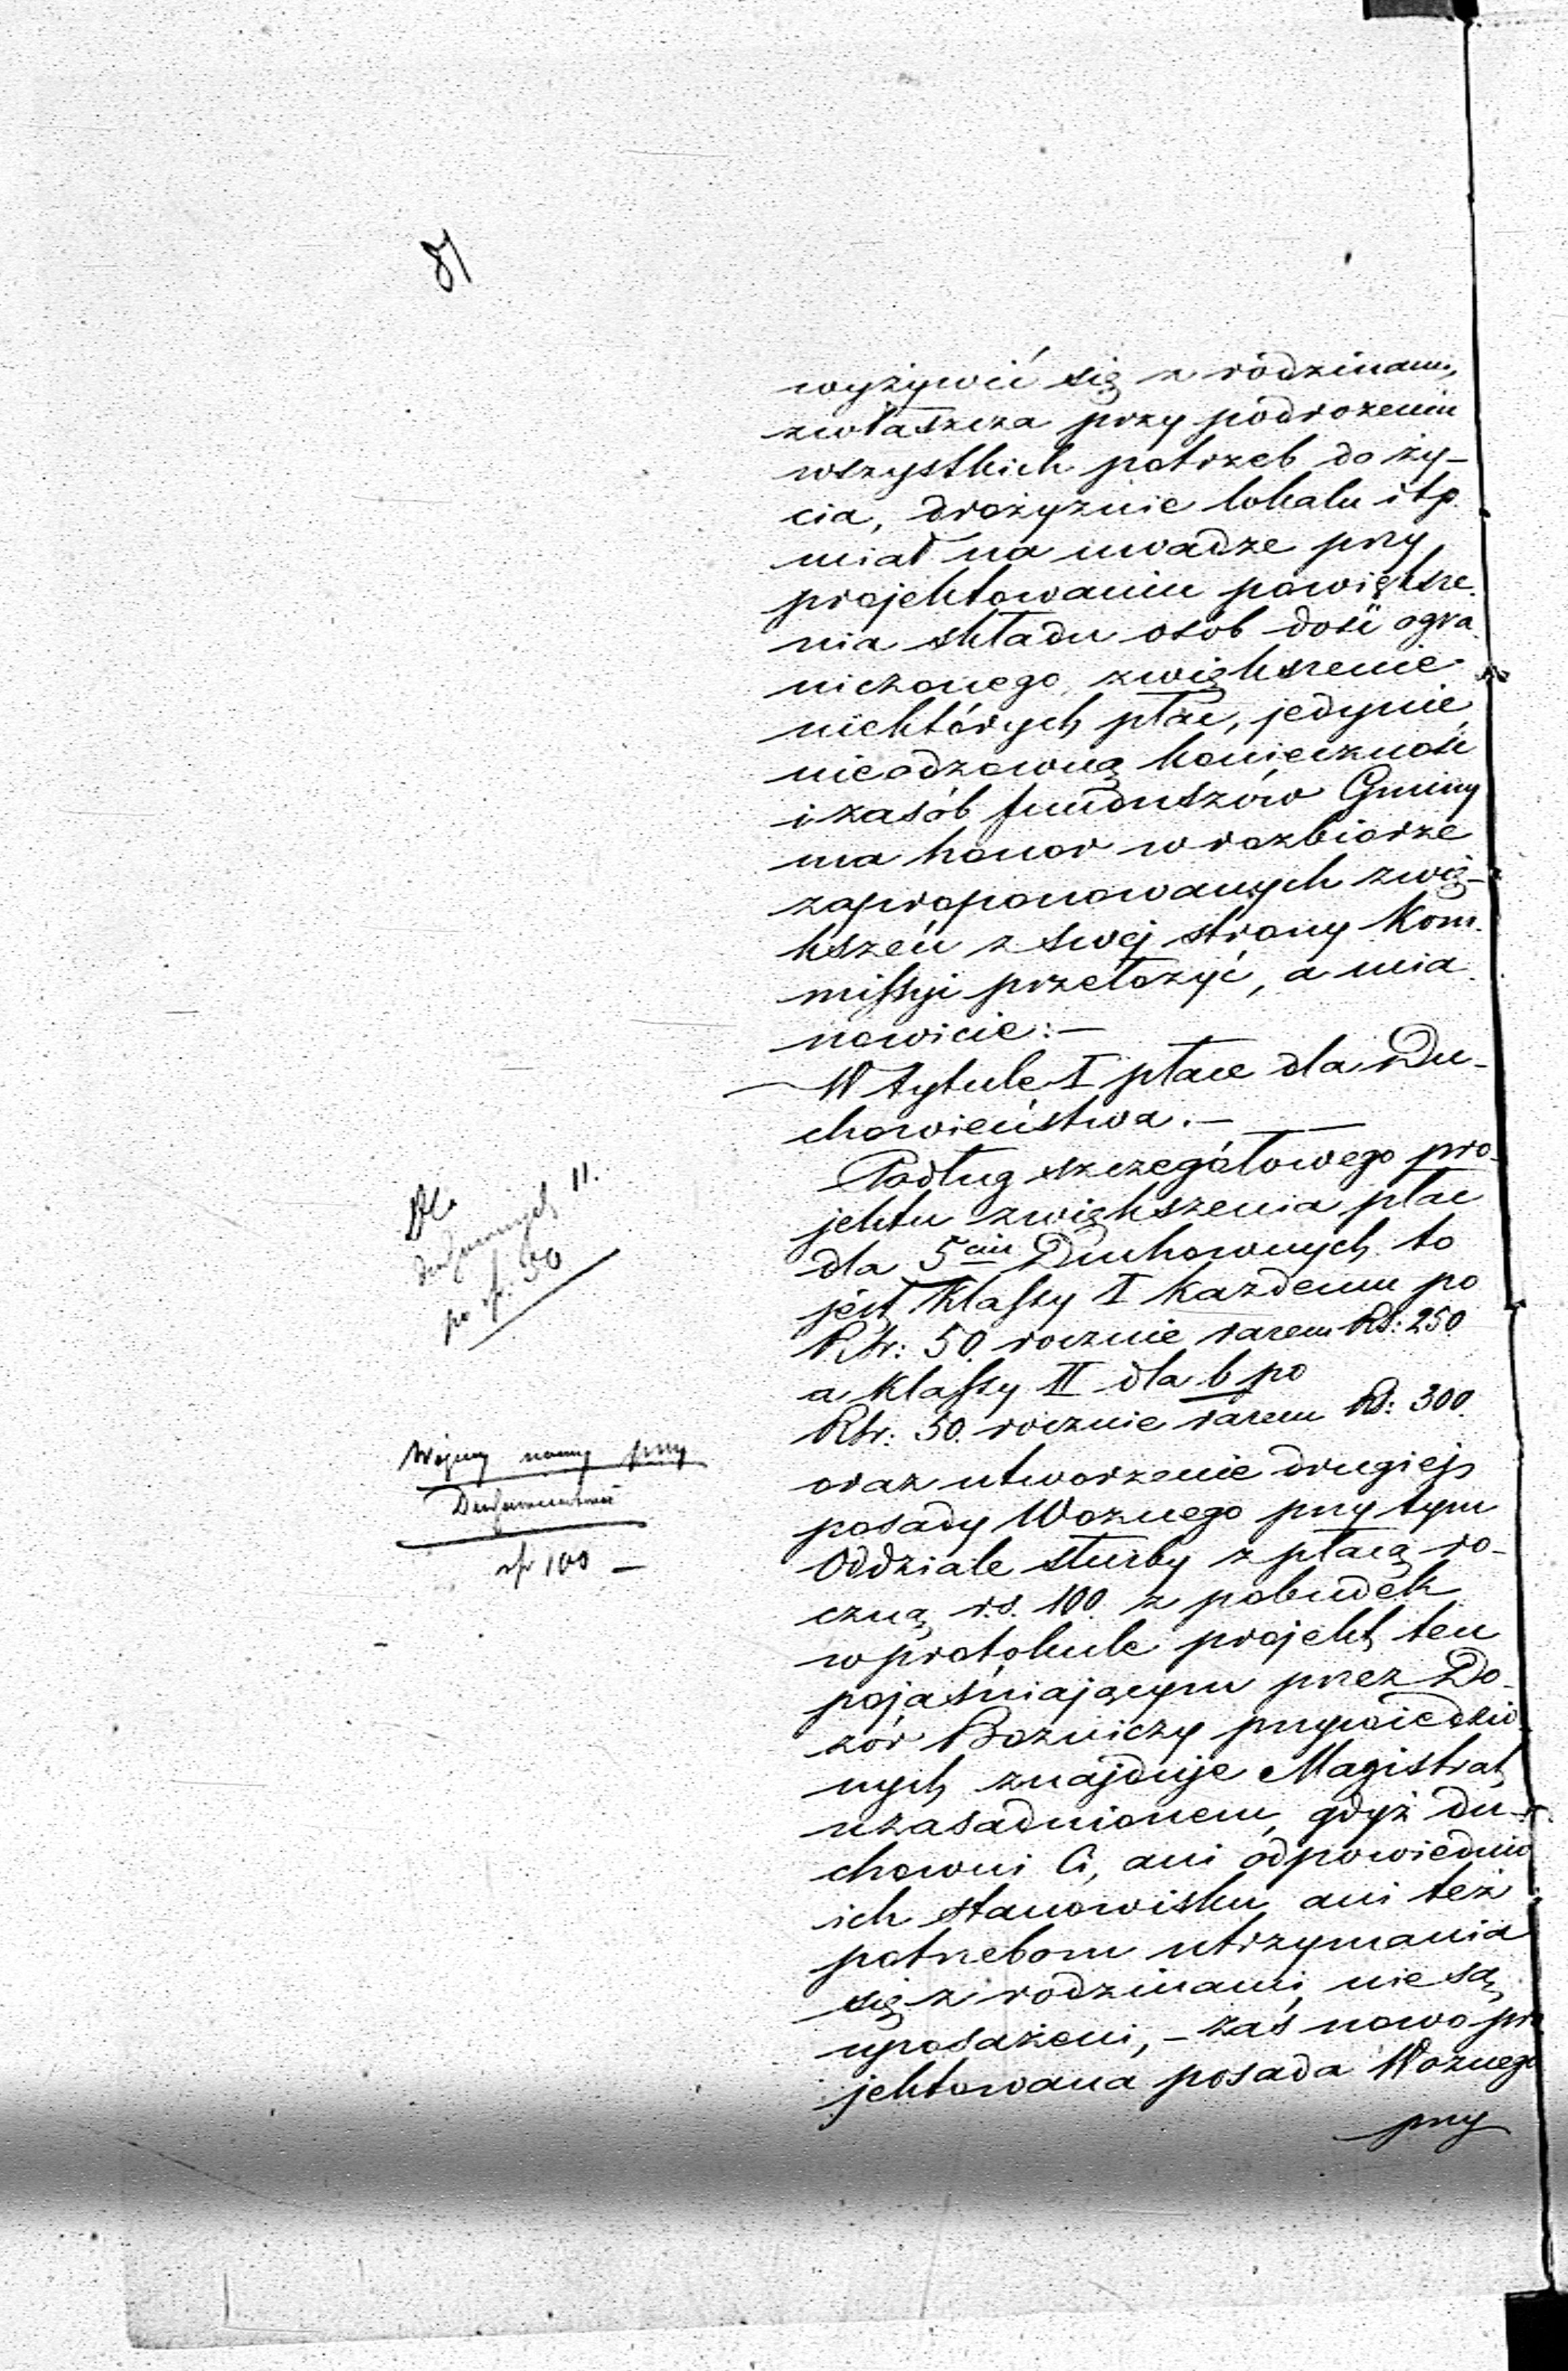 81
wyżywić się z rodzinami,
zwłaszcza przy podrożeniu
wszystkich potrzeb do ży-
cia, drożyznie lokalu itp.
miał na uwadze przy
projektowaniu powiększe-
nia składu osób dość ogra-
niczonego, zwiększenie
niektórych płac, jedynie
nieodzowną konieczność
i zasób funduszów Gminy
ma honor w rozbiorze
zaproponowanych zwię-
kszeń z swej strony Kom-
missyi przełożyć, a mia-
nowicie:—
W tytule I płace dla Du-
chowieństwa.—
Podług szczegółowego pro-
jektu zwiększenia płac
dla 5ciu Duchownych to
jest Klassy I każdemu po
Rsr: 50. rocznie razem Rs: 250
a Klassy II dla 6 po
Rsr: 50. rocznie razem Rs: 300.
oraz utworzenie drugiej
posady Woznego przy tym
Oddziale służby z płacą ro-
czną r.s. 100. z pobudek
w protokule projekt ten
pojaśniającym przez Do-
zór Bozniczy przywiedzio-
nych znajduje Magistrat
uzasadnionem, gdyż du-
chowni Ci, ani odpowiednio
ich stanowisku ani też
potrzebom utrzymania
się z rodzinami, nie są
uposażeni, – zaś nowo pro
jektowana posada Woznego
przy
Dla
duchownych 11.
po rs. 50
Woźny nowy przy
Duchowieństwie
rs 100 —